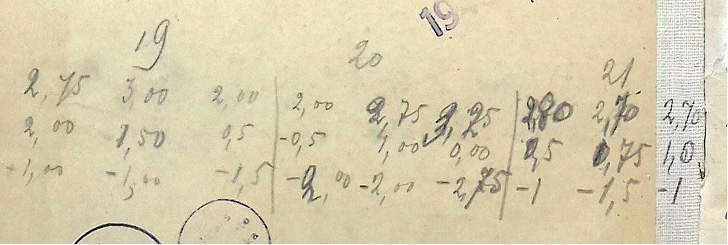 19
19
20
21
2,75 3,00 2,00 2,00 2,75 3,25 2,80 2,70 2,70
2,00 1,50 0,5 -0,5 1,00 0,00 2,5 1,75 1,0
-1,00 -1,00 -1,5 -2,00 -2,00 -2,75 -1 -1,5 -1